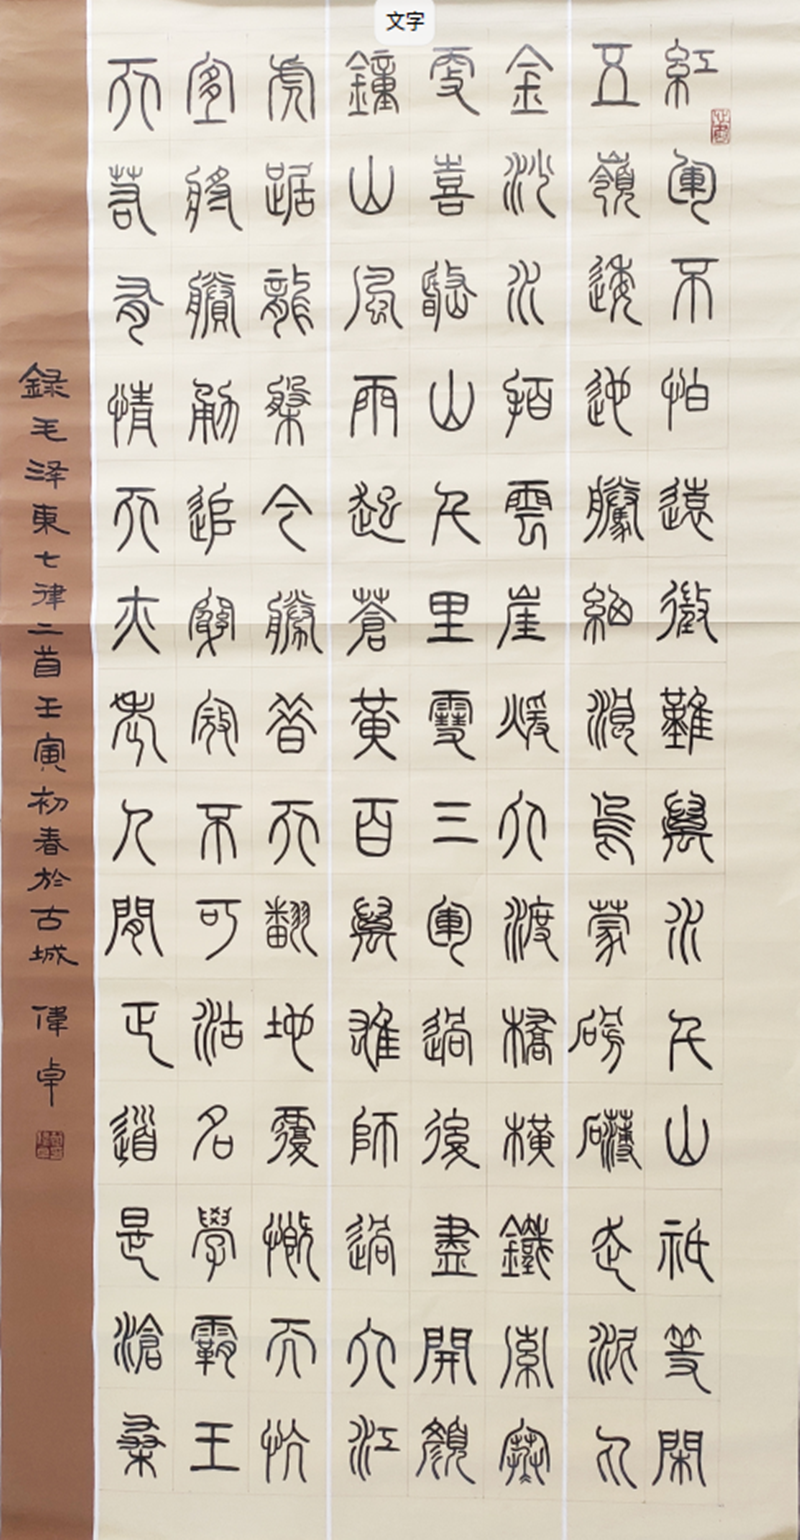 文字
紅軍不怕遠徵難萬水千山祇等閑
五嶺逶迤騰細浪烏蒙磅礴走泥丸
金沙水拍雲崖暖大渡橋橫鐵索寒
更喜岷山千里雪三軍過後盡開顏
鐘山風雨起蒼黃百萬雄師過大江
虎踞龍槃今勝昔天翻地覆慨而忼
宜將賸勇追窮寇不可沽名學霸王
天若有情天亦老人間正道是滄桑
錄毛泽東七律二首壬寅初春於古城 偉卓